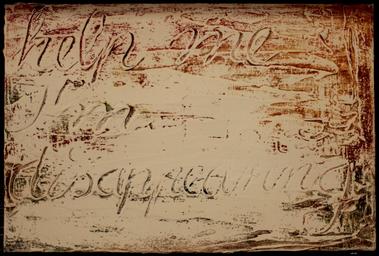 help me
I'm
disappearing